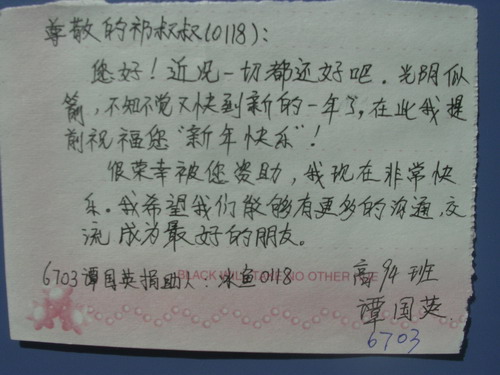 尊敬的祁叔叔(0118):
您好!近况一切都还好吧.光阴似
箭,不知不觉又快到新的一年了,在此我提
前祝福您"新年快乐"!
很荣幸被您资助,我现在非常快
乐.我希望我们能够有更多的沟通,交
流成为最好的朋友。
6703谭国英捐助人:冰鱼0118
高94班
谭国英.
6703